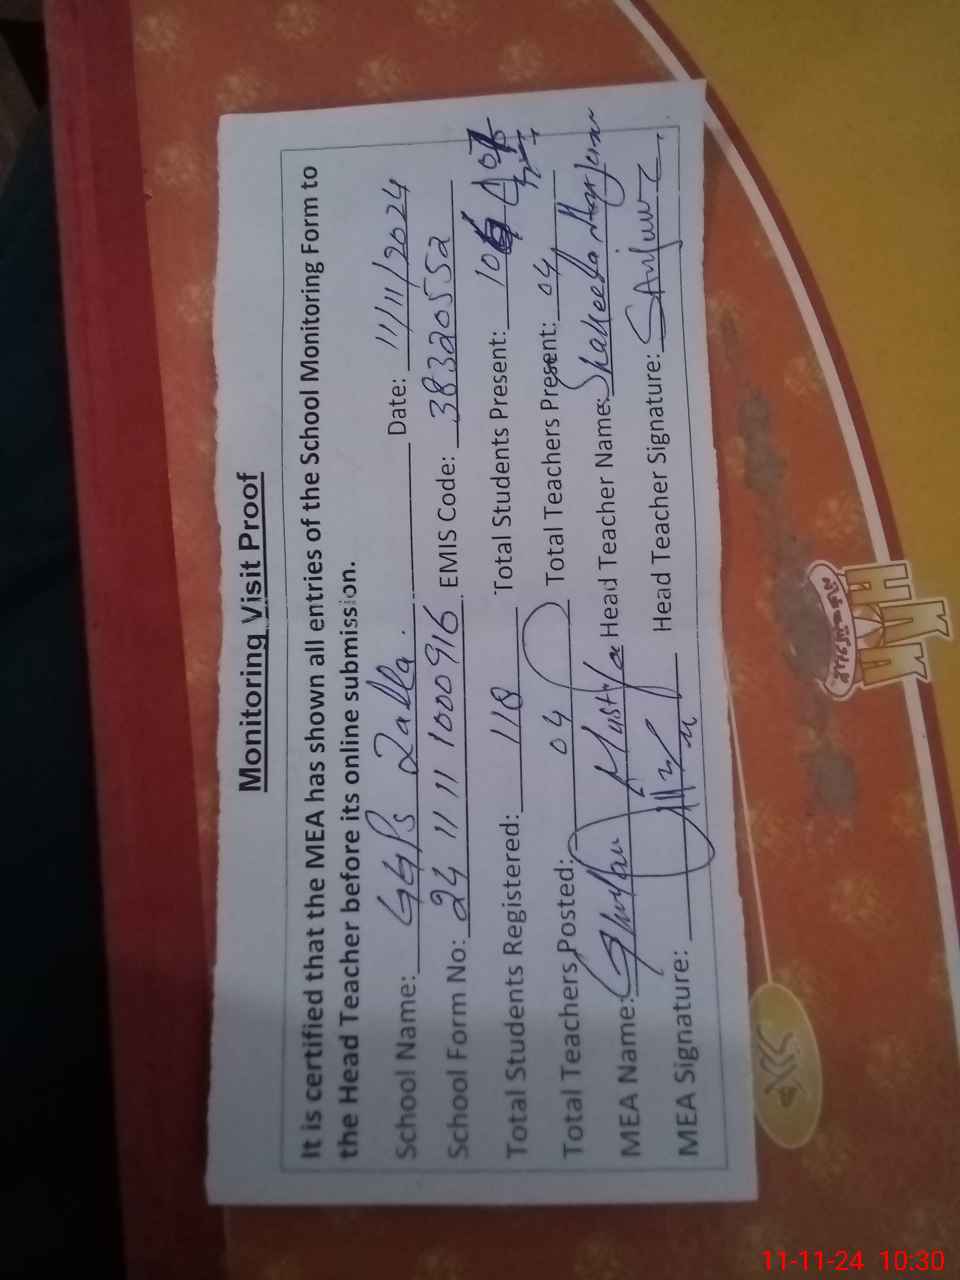 Monitoring Visit Proof
It is certified that the MEA has shown all entries of the School Monitoring Form to
the Head Teacher before its online submission.
School Name: GGPS Zalla. Date: 11/11/2024
School Form No: 24 11 11 1000916 EMIS Code: 38320552
Total Students Registered: 118 Total Students Present:
Total Teachers Posted: 04 Total Teachers Present: 04
MEA Name: Ghulam Mustafa Head Teacher Name: Shakeela
MEA Signature: Head Teacher Signature:
11-11-24 10:30